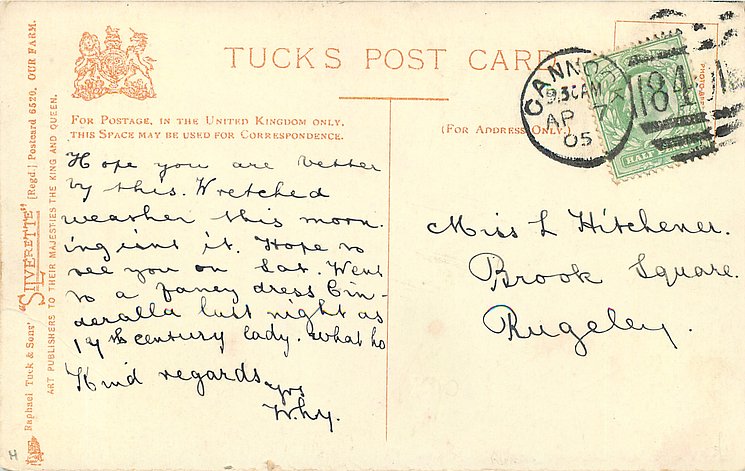 TUCK'S POST CARD
FOR POSTAGE, IN THE UNITED KINGDOM ONLY,
THIS SPACE MAY BE USED FOR CORRESPONDENCE.
(FOR ADDRESS ONLY.)
CANNOCK
9.30AM
AP
05
184
HALF
Hope you are better
by this. Wretched
weather this morn.
ing isnt it. Hope to
see you on Sat. Went
to a fancy dress Cin-
deralla last night as
17th century lady. what ho
Kind regards
yrs
Why.
Miss L Hitchener.
Brook Square.
Rugeley.
Raphael Tuck & Sons' "SILVERETTE" [Regd.] Postcard 6520. OUR FARM.
ART PUBLISHERS TO THEIR MAJESTIES THE KING AND QUEEN.
H